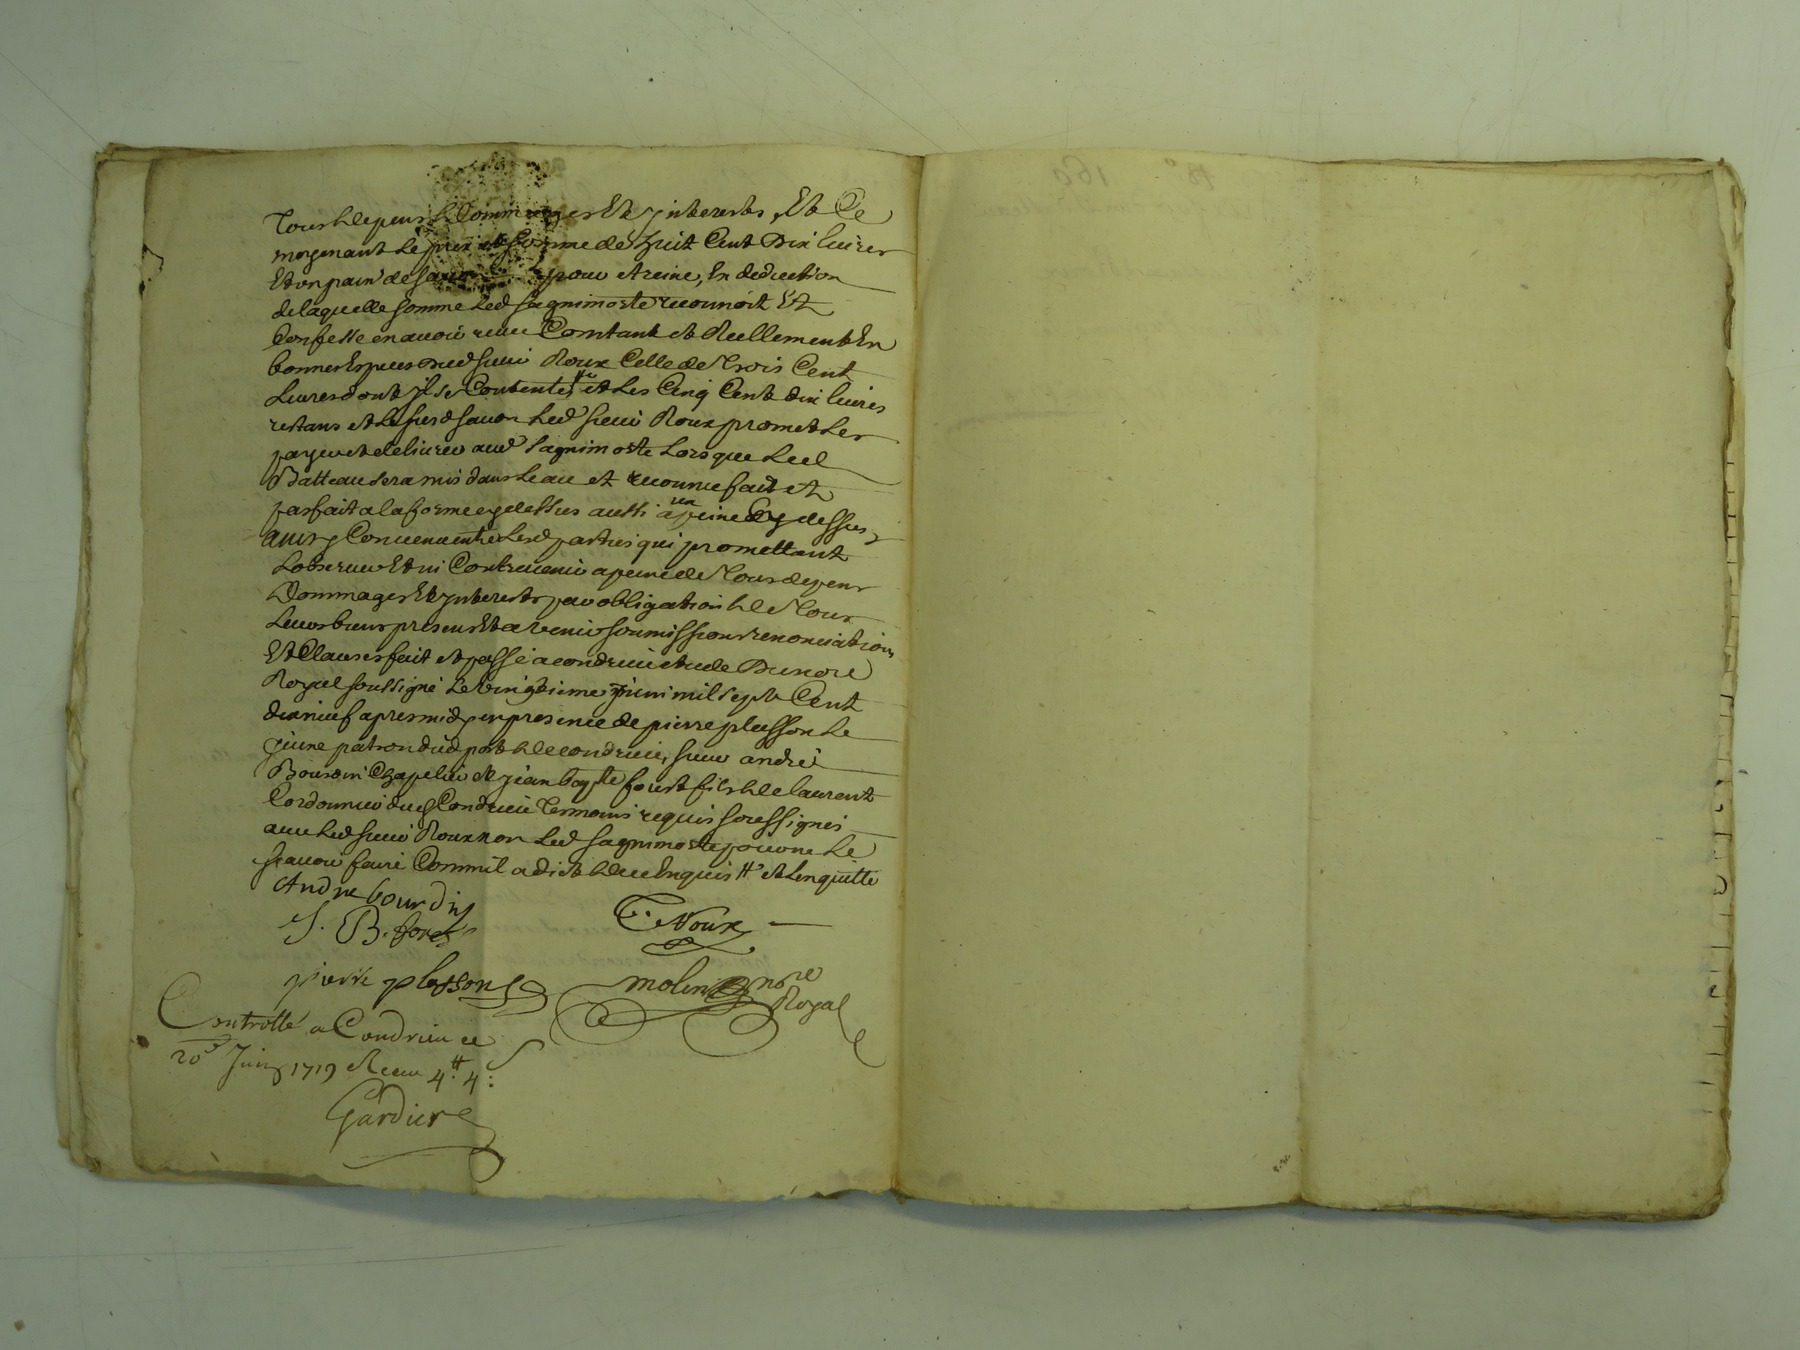 Tous depens Dommages Et Interests, Et Ce
moyenant Le prix et somme de huit Cent Dix livres
Et un pain de savon pour etreine, En deduction
de laquelle somme Led sagnimorte reconnoit Et
Confesse en avoir receu Comtant et Reellement En
bonnes Especes Dud sieur Roux Celle de Trois Cent
Livres dont Il se Contente et Les Cinq Cent dix livres
restans et Led savon Led sieur Roux promet Les
payer et delivrer aud Sagnimorte Lors que Led
Batteau sera mis dans Leau et reconnu fait et
parfait a la forme cy dessus aussi a peine Cy dessus
ainsy Convenu entre Lesd parties qui promettant
Lobserver Et ni Contrevenir a peine de Tous depens
Dommages Et Interests par obligation de Tous
Leurs biens presens Et a venir soumissions renonciations
Et Clauses fait et passé a condrieu etude Du nore
Royal soussigné Le vingtieme juin mil sept Cent
dix neuf apres midy en presence de pierre plasson Le
jeune patron dud port de condrieu, sieur andré
Bourdin Chapelier et jean bapte forest fils de laurent
Cordonnier dud Condrieu Temoins requis soussignés
avec Led sieur Roux non Led sagnimorte pour ne Le
scavoir faire Comm'il a dit de ce Enquis
Andre bourdin
J. B. forest
Roux
pierre plasson
molin nore
Royal
Controllé a Condrieu ce
20e Juin 1719 Receu 4tt 4s
Gardier
No 160